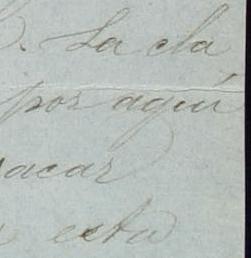 . La cla
por aquí
acar
esta